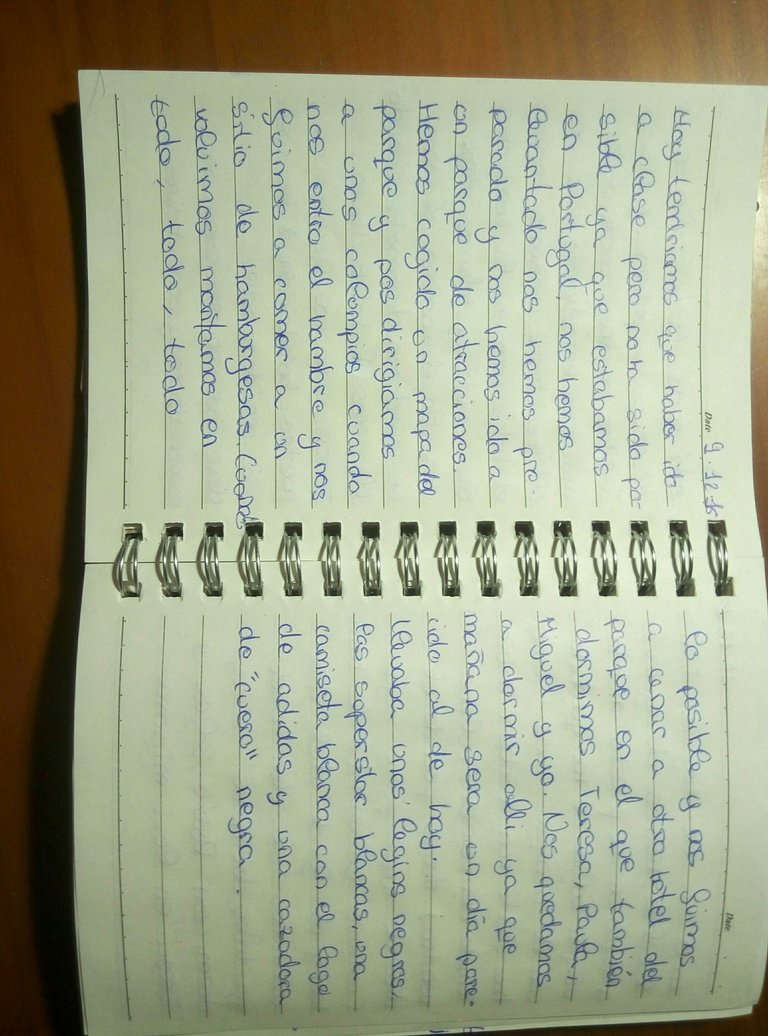 Date 9.12.
Hoy tendriamos que haber ido
a clase pero no ha sido po-
sible ya que estabamos
en Portugal, nos hemos
levantado nos hemos pre-
parado y nos hemos ido a
un parque de atracciones.
Hemos cogido un mapa del
parque y nos dirigiamos
a unos columpios cuando
nos entro el hambre y nos
fuimos a comer a un
sitio de hamburgesas. Cuando
volvimos montamos en
todo, todo, todo
Date
lo posible y nos fuimos
a cenar a otro hotel del
parque en el que también
dormimos Teresa, Paula,
Miguel y yo. Nos quedamos
a dormir alli ya que
mañana sera un día pare-
cido al de hoy.
llevaba unos legins negros,
las superstar blancas, una
camiseta blanca con el logo
de adidas y una cazadora
de "cuero" negra.